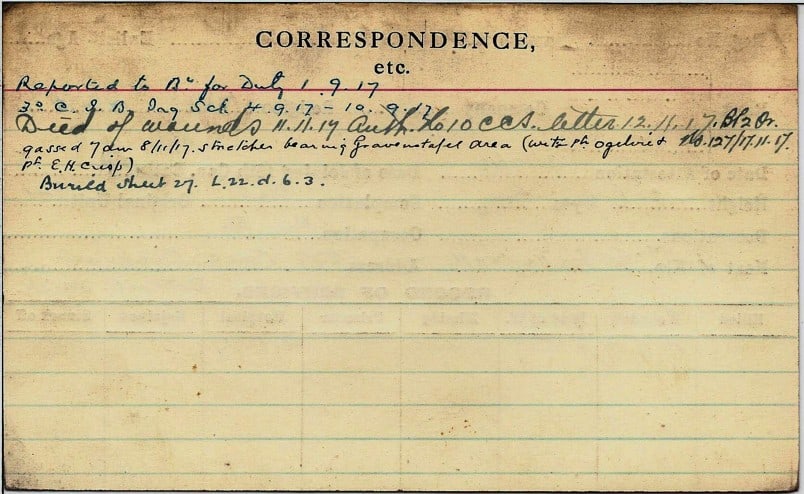 CORRESPONDENCE,
etc.
Reported to Bn for Duty 1.9.17
3rd C.I.B. Sch. 4.9.17 - 10.9.17
Died of wounds 11.11.17 Auth. No 10 CCS. letter 12.11.17.
gassed 7am 8/11/17. stretcher bearing Gravenstafel area (with Pt. Ogelvie & No. 127/17.11.17.
Pt. E.H. Crisp)
Buried Sheet 27. L.22.d.6.3.